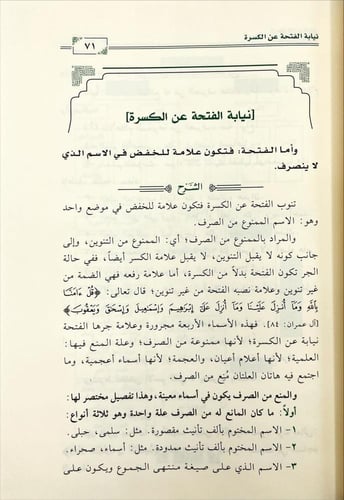 نيابة الفتحة عن الكسرة
٧١
[نيابة الفتحة عن الكسرة]
وأما الفتحة: فتكون علامة للخفض في الاسم الذي
لا ينصرف.
الشرح
تنوب الفتحة عن الكسرة فتكون علامة للخفض في موضع واحد
وهو: الاسم الممنوع من الصرف.
والمراد بالممنوع من الصرف؛ أي: الممنوع من التنوين، وإلى
جانب كونه لا يقبل التنوين، لا يقبل علامة الكسر أيضاً، ففي حالة
الجر تكون الفتحة بدلاً من الكسرة، أما علامة رفعه فهي الضمة من
غير تنوين وعلامة نصبه الفتحة من غير تنوين؛ قال تعالى: ﴿قُلْ ءَامَنَّا
بِاللَّهِ وَمَا أُنزِلَ عَلَيْنَا وَمَا أُنزِلَ عَلَىٰ إِبْرَاهِيمَ وَإِسْمَاعِيلَ وَإِسْحَاقَ وَيَعْقُوبَ﴾
[آل عمران: ٨٤]. فهذه الأسماء الأربعة مجرورة وعلامة جرها الفتحة
نيابة عن الكسرة؛ لأنها ممنوعة من الصرف؛ وعلة المنع فيها:
العلمية؛ لأنها أعلام أعيان، والعجمة؛ لأنها أسماء أعجمية، وما
اجتمع فيه هاتان العلتان مُنِع من الصرف.
والمنع من الصرف يكون في أسماء معينة، وهذا تفصيل مختصر لها:
أولاً: ما كان المانع له من الصرف علة واحدة وهو ثلاثة أنواع:
١- الاسم المختوم بألف تأنيث مقصورة. مثل: سلمى، حبلى.
٢- الاسم المختوم بألف تأنيث ممدودة. مثل: أسماء، صحراء.
٣- الاسم الذي على صيغة منتهى الجموع ويكون على